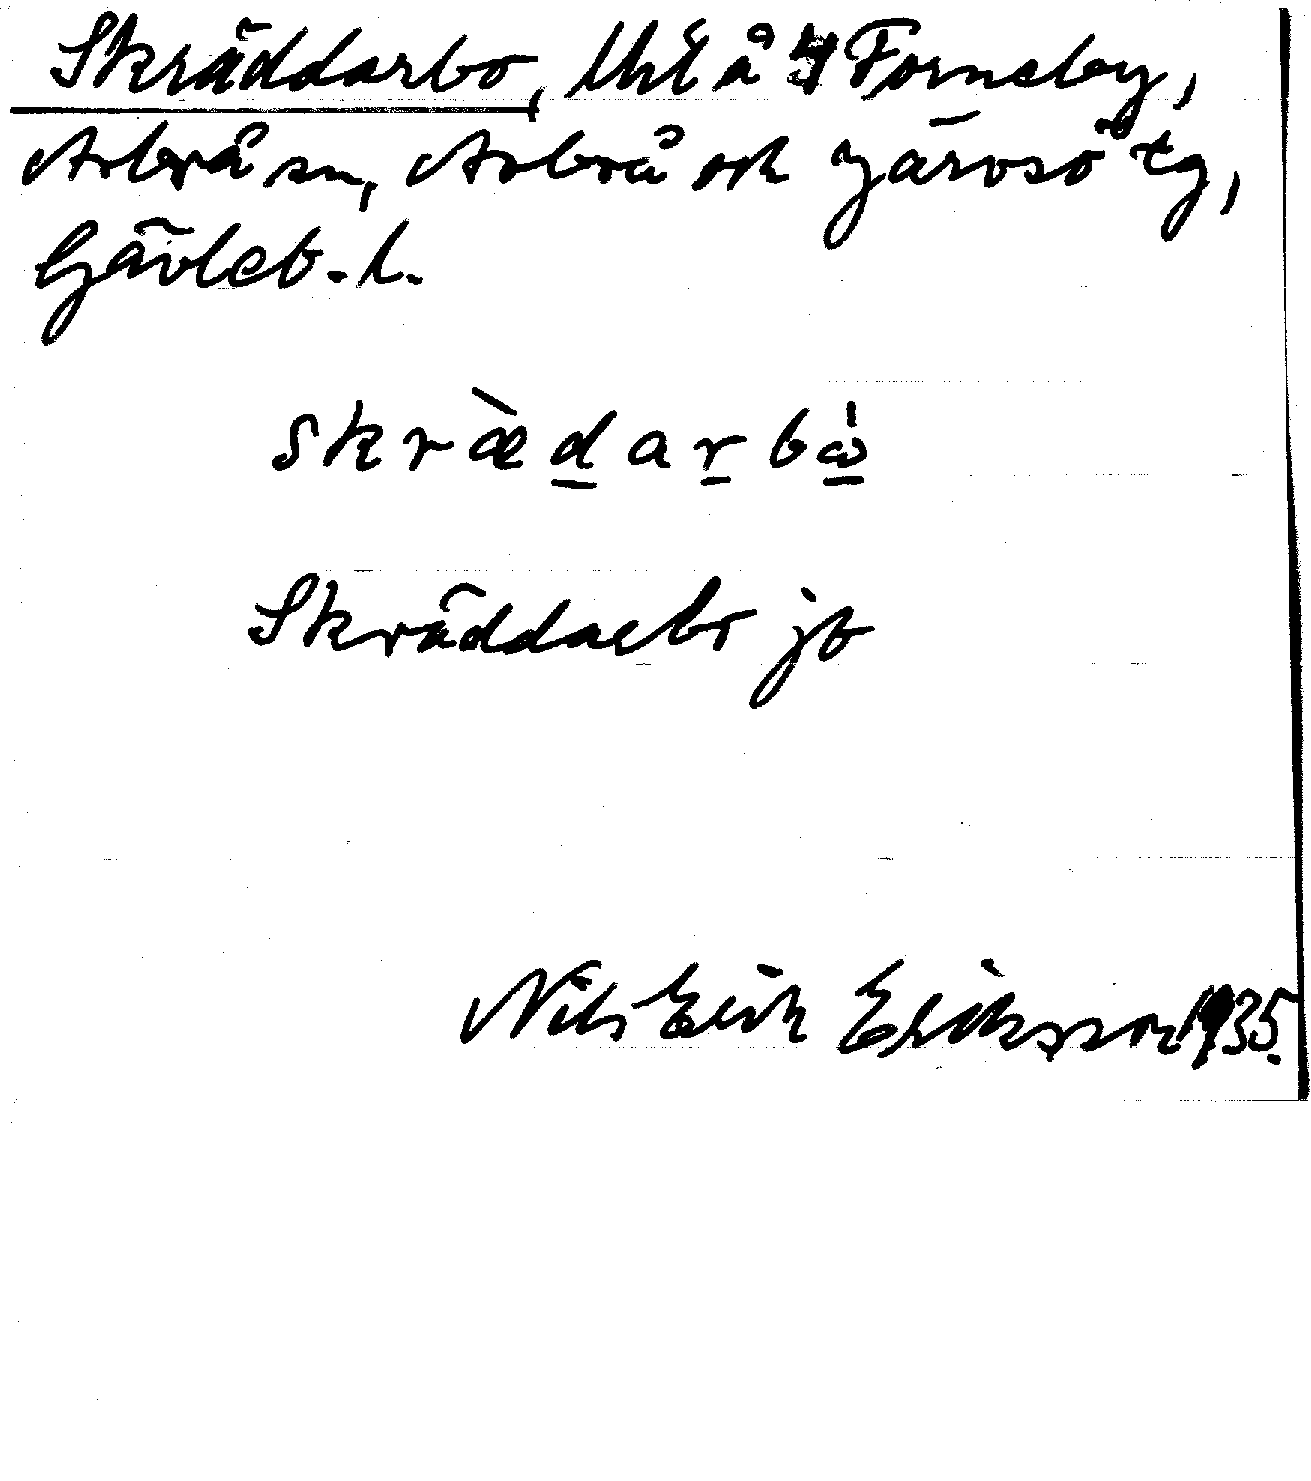 Skräddarbo, lht å 4 Forneby,
Arbrå sn, Arbrå och Järvsö tg,
Gävleb. l.
skræ̀darbὼ
Skräddarbo jb
Nils Erik Eriksson 1935.